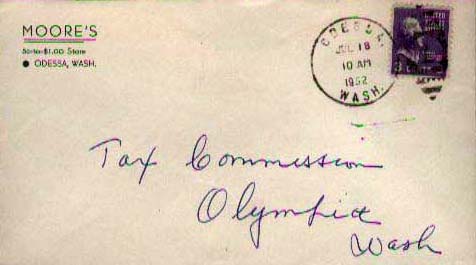 MOORE'S
5c-to-$1.00 Store
ODESSA, WASH.
ODESSA,
JUL 18
10 AM
1952
WASH.
UNITED
Tax Commission
Olympia
Wash